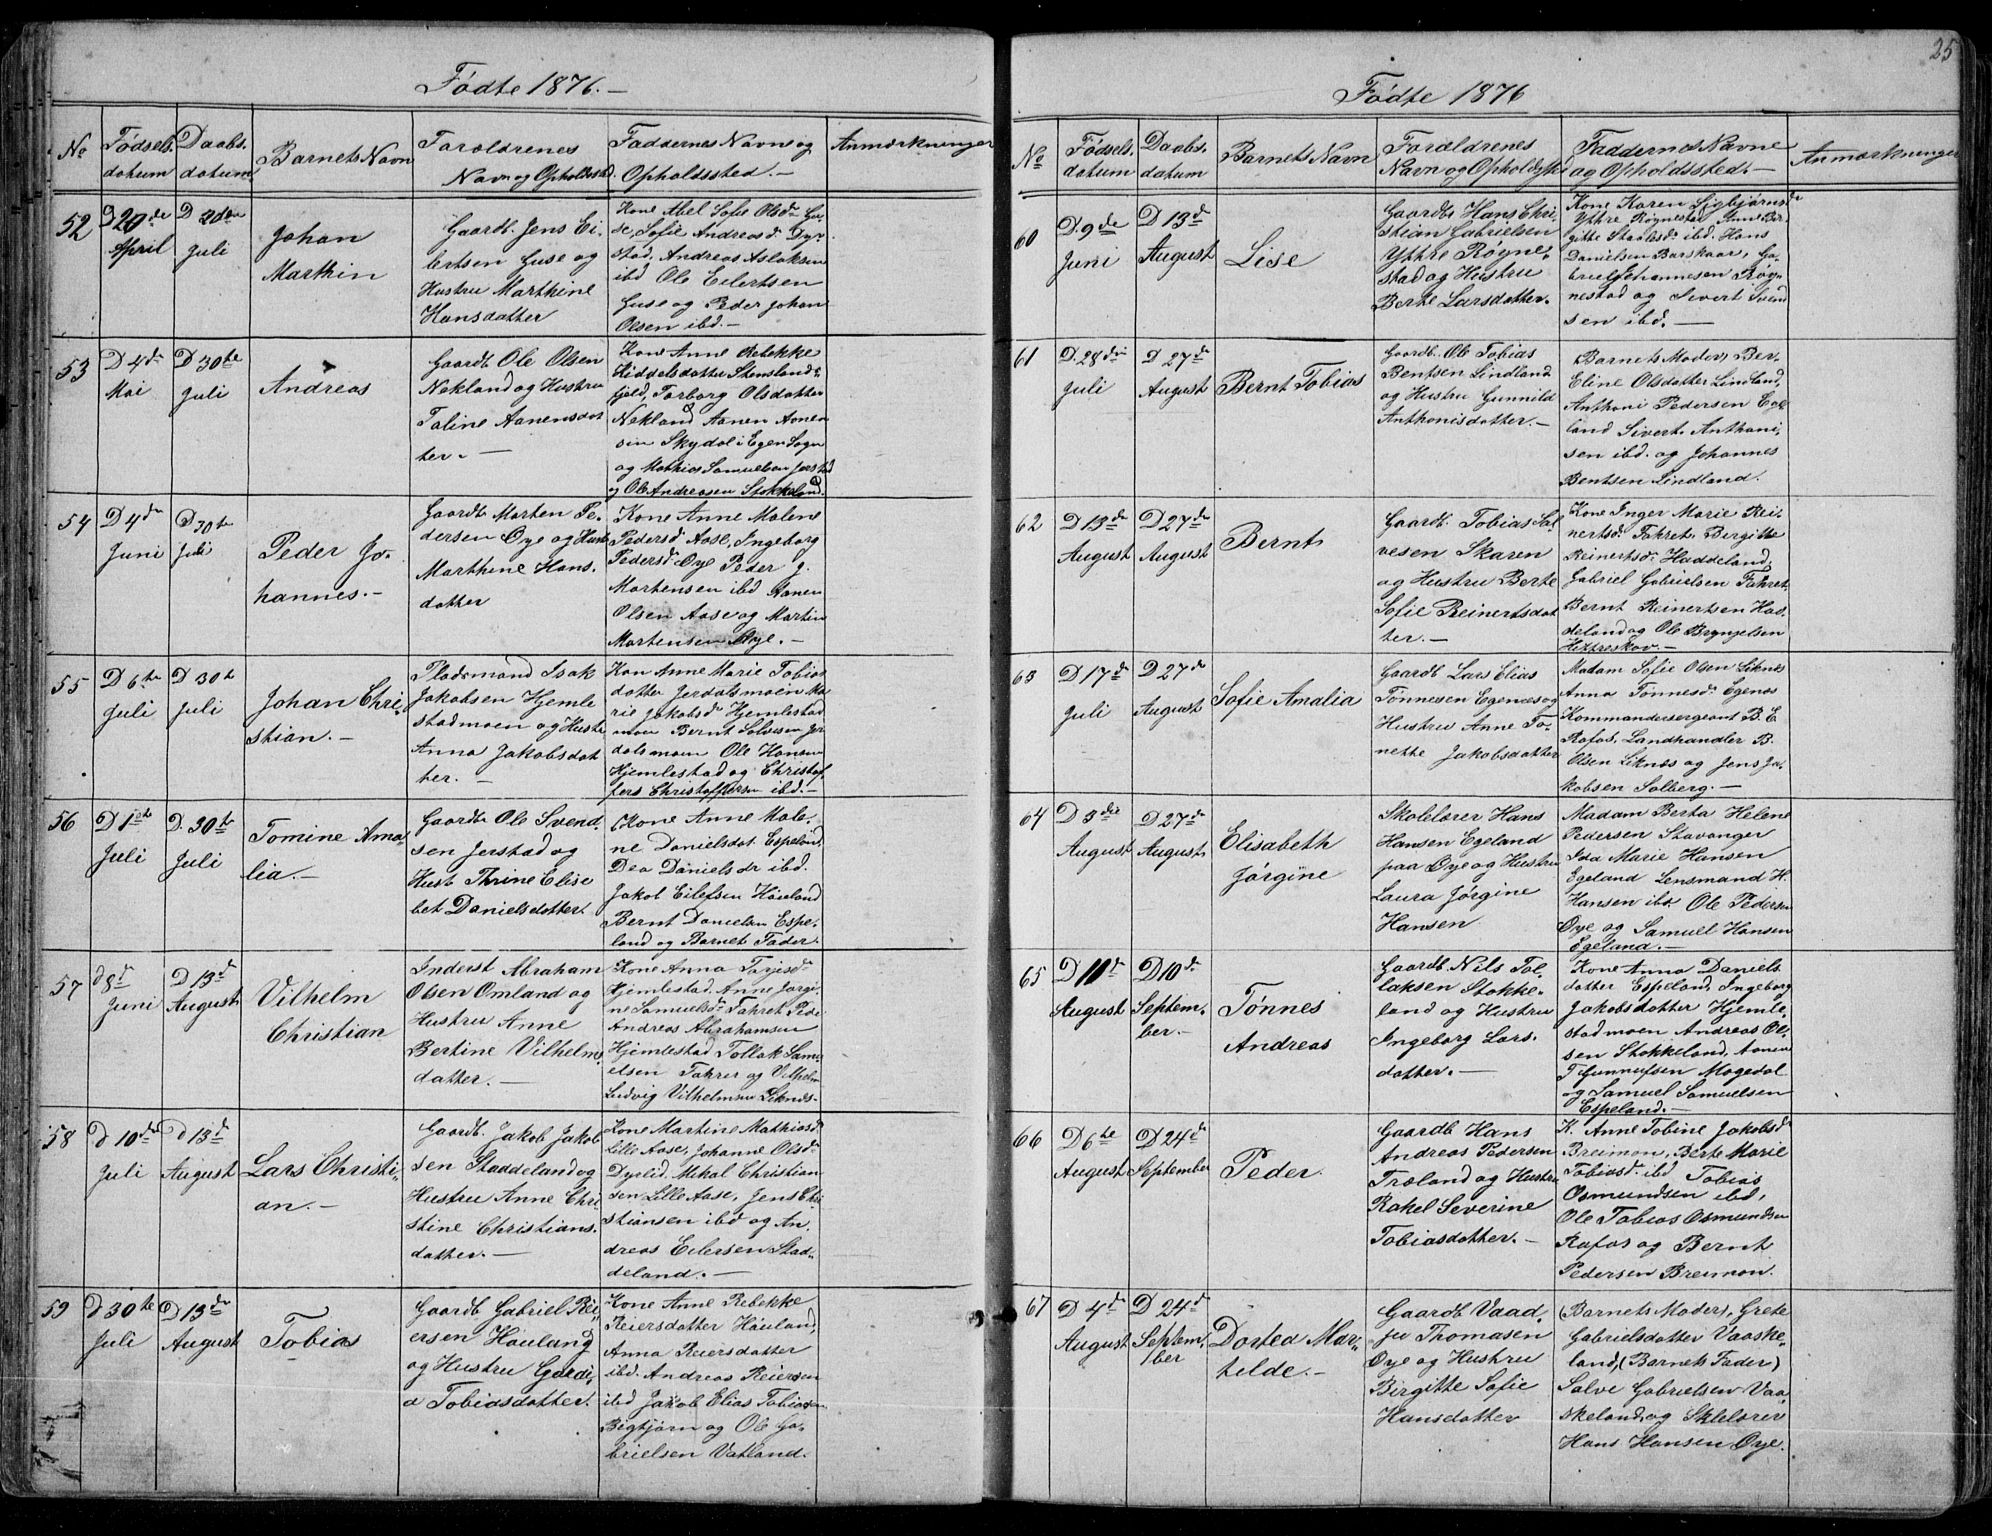 Fødte 1876.—
No
Fødsels-
datum
Daabs-
datum
Barnets Navn
Foroldrenes
Navn og Opholdsstd.
Faddernes Navne og
Opholdssted.—
Anmærkninger
52
D 20de
April
D 2den
Juli
Johan
Marthin
Gaardb. Jens Ei-
lertsen Guse og
Hustru Marthine
Hansdatter
Kone Abel Sofie Olsdr Gu-
se, Sofie Andreasdr Dyr-
stad, Andreas Aslaksen
ibd Ole Eilertsen
Guse og Peder Johan
Olsen ibd.—
53
D 4de
Mai
D 30te
Juli
Andreas
Gaardb Ole Olsen
Nekland og Hustru
Taline Aanensdat
ter.—
Kone Anne Rebekke
Hiddelsdatter Stensland-
fjeld, Torborg Olsdatter
Nekland Aanen Aanen
sen Skydal i Egen Sogn
og Mathias Samuelsen Jerstad
og Ole Andreasen Stokkeland.
54
D 4de
Juni
D 30te
Juli
Peder Jo-
hannes.—
Gaardb Morten Pe-
dersen Øye og Hust
Marthine Hans-
datter
Kone Anne Malene
Pedersd Aase, Ingeborg
Pedersdr Øye Peder
Mortensen ibd Aanen
Olsen Aase og Martin
Mortensen Øye.—
55
D 6te
Juli
D 30te
Juli
Johan Chri-
stian.—
Pladsmand Isak
Jakobsen Hjemle
stadmoen og Hustr
Anna Jakobsdat
ter.—
Kon Anne Marie Tobias
datter Jerdalsmoen Ma
rie Jakobsdr Hjemlestad
moen Bernt Salvesen Jer
dalsmoen Ole Hansen
Hjemlestad og Christof-
fers Christoffersen ibd.—
56
D 1ste
Juli
D. 30te
Juli
Tomine Ama-
lia.—
Gaardb Ole Svend-
sen Jerstad og
Hust Thrine Elise
bet Danielsdatter.
Kone Anne Male-
ne Danielsdat. Espeland
Dea Daniels dr ibd.
Jakob Eilefsen Høieland
Bernt Danielsen Espe-
land og Barnets Fader.
57
d 8de
Juni
D 13de
August
Vilhelm
Christian
Inderst Abraham
Olsen Omland og
Hustru Anne
Bertine Vilhelm-
datter.—
Kone Anna Torjesdr
Hjemlestad. Anne Jorgi-
ne Samuelsdr Fahret Pede
Andreas Abrahamsen
Hjemlestad Tollak Sam-
elsen Fahret og Vilhelm
Ludvig Vilhelmsen Liknes-
58
d 10de
Juli
D 13de
August
Lars Christi-
an.—
Gaardb. Jakob Jakob
sen Staddeland og
Hustru Anne Chri
stine Christians-
datter.—
Kone Martine Mathiasdr
Lille Aase, Johanne Olsdr
Dyrlid. Mikal Christian
sen Lille Aase, Jens Chri
stiansen ibd og An-
dreas Eilersen Stad-
deland.—
59
d 30te
Juli
D 13de
August
Tobias
Gaardb Gabriel Rei-
ersen Houland
og Hustru Gurdi-
a Tobiasdatter.
Kone Anne Rebekke
Reiersdatter Houland,
Anna Reiersdatter
ibd. Andreas Reiersen
ibd Jakob Elias Tobiasen
Bigtjørn og Ole Ga-
brielsen Vatland.
25
Fødte 1876
No
Fødsels-
datum
Daabs-
datum
Barnets Navn
Forældrenes
Navn og Opholdsstd
Faddernes Navne
og Opholdssted.—
Anmærkninger
60
D. 9de
Juni
D 13de
August
Lise
Gaardb Hans Chri-
stian Gabrielsen
Yttre Røgne-
stad og Hustru
Berte Larsdatter.
Kone Karen Sigbjørnsdr
Yttre Røgnestad Anne Ber-
gitte Staalesdr ibd. Hans
Danielsen Barskaar, Ga-
briel Johannesen Røg-
nestad og Sivert Svend
sen ibd.—
61
D. 28de
Juli
D 27de
August
Bernt Tobias
Gaardb. Ole Tobias
Bentsen Lindland
og Hustru Gunnild
Anthonisdatter.—
Barnets Moder, Ber-
Eline Olsdatter Lindland,
Anthoni Pedersen Ege-
land Sivert Anthoni-
sen ibd. og Johannes
Bentsen Lindland.
62
D 13de
August
D 27de
August
Bernt
Gaardb. Tobias Sal-
vesen Skaren
og Hustru Berte
Sofie Reinertsdat
ter.—
Kone Inger Marie Rei-
nertsdr Fahret, Bergitte
Reinertsdr Haddeland,
Gabriel Gabrielsen Fahret
Bernt Reinertsen Had-
deland og Ole Brynjelsen
Hettreskov.—
63
D 17de
Juli
D 27de
August
Sofie Amalia
Gaardb Lars Elias
Tønnesen Egenæs og
Hustru Anne To-
nette Jakobsdatter
Madam Sofie Olsen Liknes
Anna Tonnesdr Egenes
Kommandersergeant B. E.
Rafos, Landhandler B.
Olsen Liknæs og Jens Ja-
kobsen Solberg.—
64
D 3die
August
D 27de
August
Elisabeth
Jørgine
Skolelærer Hans
Hansen Egeland
paa Øye og Hustru
Laura Jørgine
Hansen
Madam Berta Helene
Pedersen Stavanger
Ida Marie Hansen
Egeland Lensmand H.
Hansen ibd. Ole Pedersen
Øye og Samuel Hansen
Egeland.—
65
D 11te
August
D 10de
Septem-
ber.—
Tønnes
Andreas
Gaardb. Nils Tol-
laksen Stokke-
land og Hustru
Ingeborg Lars-
datter.—
Kone Anna Daniels
datter Espeland, Ingeborg
Jakobsdatter Hjemle-
stadmoen Andreas Ol-
sen Stokkeland, Aanen
T Gunnufsen Mogedal
og Samuel Samuelsen
Espeland.—
66
D 6te
August
D 24de
September
Peder.
Gaardb Hans
Andreas Pedersen
Træland og Hustru
Rakel Severine
Tobiasdatter.—
K. Anne Tobine Jakobsdr
Breimon, Berte Marie
Tobiasdr ibd Tobias
Osmundsen ibd,
Ole Tobias Osmundsen
Rafos og Bernt
Pedersen Breimon.
67
D 4de
August
D 24de
Septem-
ber
Dorted Mat-
telde.—
Gaardb Vaad-
je Thomasen
Øye og Hustru
Birgitte Sofie
Hansdatter
(Barnets Moder), Grete
Gabrielsdatter Vaaske-
land, (Barnets Fader)
Salve Gabrielsen Vaa-
skeland, og Sklelærer
Hans Hansen Øye.